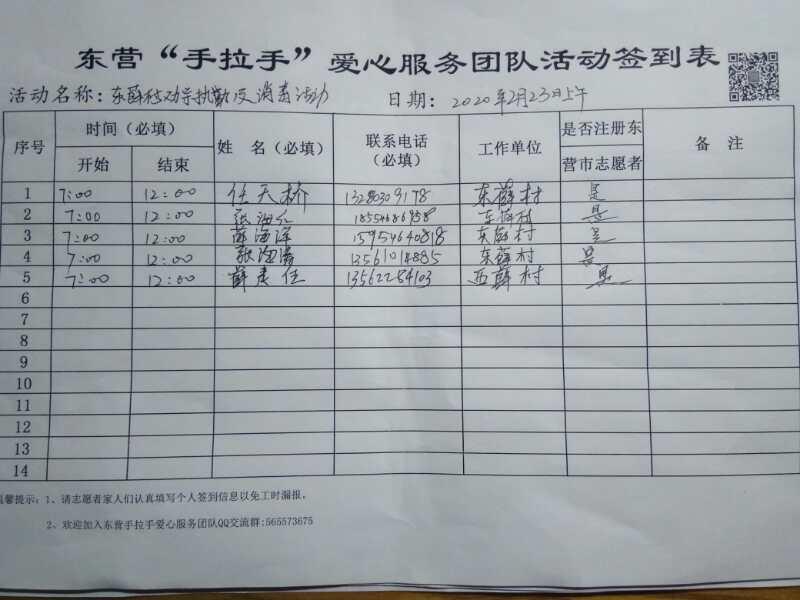 东营“手拉手”爱心服务团队活动签到表
活动名称：东薛村劝导执勤及消毒活动 日期：2020年2月23日上午
序号 时间（必填） 姓 名（必填） 联系电话（必填） 工作单位 是否注册东营市志愿者 备 注
开始 结束
1 7:00 12:00 任天桥 13280309178 东薛村 是
2 7:00 12:00 东薛村 是
3 7:00 12:00 薛海洋 15954640818 东薛村 是
4 7:00 12:00 张海涛 13561014885 东薛村 是
5 7:00 12:00 13562284103 西薛村 是
6
7
8
9
10
11
12
13
14
温馨提示：1、请志愿者家人们认真填写个人签到信息以免工时漏报。
2、欢迎加入东营手拉手爱心服务团队QQ交流群:565573675